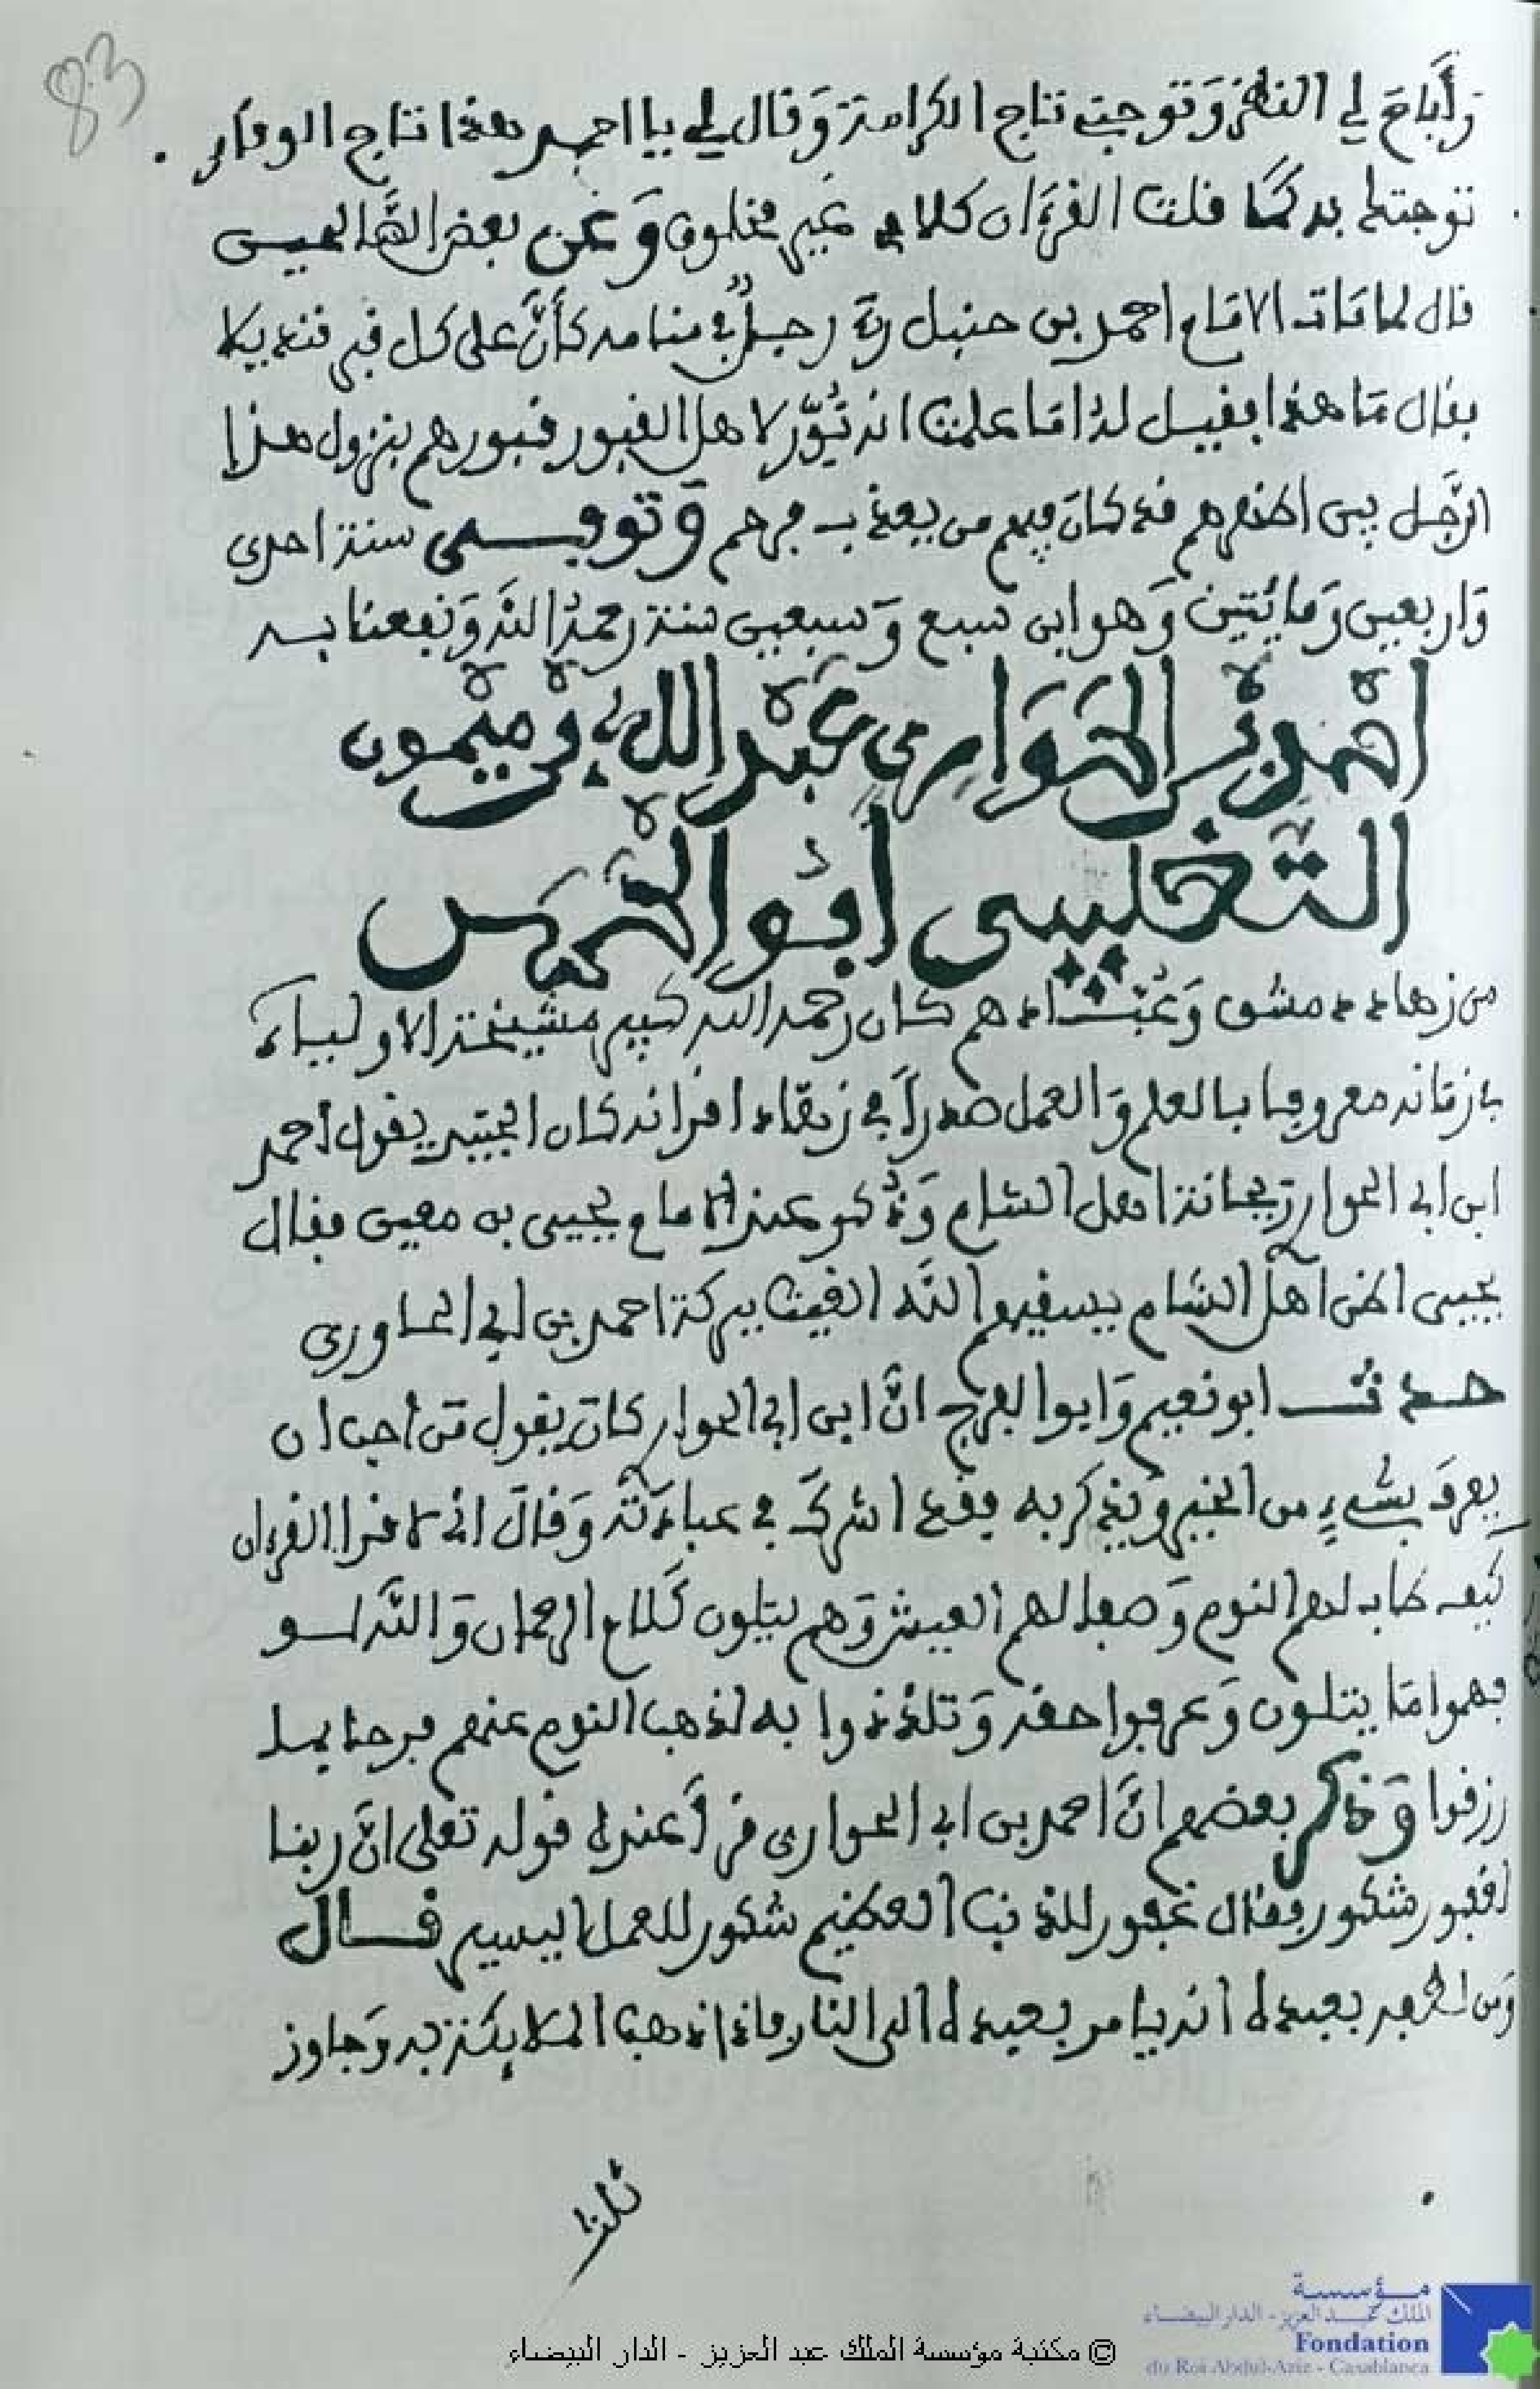 83
وَأَبَاحَ لي النظر وَتوجني تاج الكرامة وَقال لي يا احمد هذا تاج الوفار
توجتك به كما فلت الفرءان كلام غير مخلوق وَعن بعض الصَّالحين
فال لما مَات الامَام احمد بن حنبل رءَى رجلٌ في منامه كأنَّ على كل فبر فنديلا
بفال مَا هذا بفيل له امَا علمت انه نُوِّر لاهل الفبور فبورهم بنزول هذا
الرَّجل بين اظهرهم فد كانَ فيهم من يعذب فرحم وَتوفي سنة احدى
وَاربعين وَمائتين وَهو ابن سبع وَسبعين سنة رحمهُ اللهَ وَنفعنا به
احْمد بْن الْحَوَاري عَبْد الله بْن ميْمون
التغلبي ابو الْحَسَن
من زهاد دمشق وَعُبَّادهم كان رحمه الله كبير مشيخة الاولياء
بزمَانه معروفا بالعلم وَالعمل صدراً في زهَّاد افرانه كان الجنيد يفول أحمد
ابن ابي الحواري ريحانة اهل الشام وَذُكر عند الامام يحيى بن معين ففال
يحيى اظن اهل الشام يسفيهم اللَّه الغيث ببركة احمد بن ابي الحواري
حدث ابو نعيم وَابوا الفرج انَّ ابن ابي الحواري كانَ يفول مَن أحب ان
يعرفَ بشيءٍ من الخير ويذكر به ففد اشركَ في عبادَته وَفالَ اني لافرا الفرءان
كيف طاب لهم النوم وَصفا لهم العيش وَهم يتلون كَلام الرحمان وَاللَّه لو
فهموا مَا يتلون وَعرفوا حفه وَتلذذوا به لذهب النوم عنهم فرحا بما
رزفوا وَذكر بعضهم انَّ احمد بن ابي الحواري فرأ عنده فوله تعلى انَّ ربنا
لغفور شكور ففال غفور للذنب العظيم شكور للعمل اليسير فال
وَمن لطفه بعبده انه يامر بعبده الى النار فاذا ذهبت الملائكة به وَجاوز
ثلث
مؤسسة
الملك عبد العزيز - الدار البيضاء
Fondation
du Roi Abdul-Aziz - Casablanca
© مكتبة مؤسسة الملك عبد العزيز - الدار البيضاء